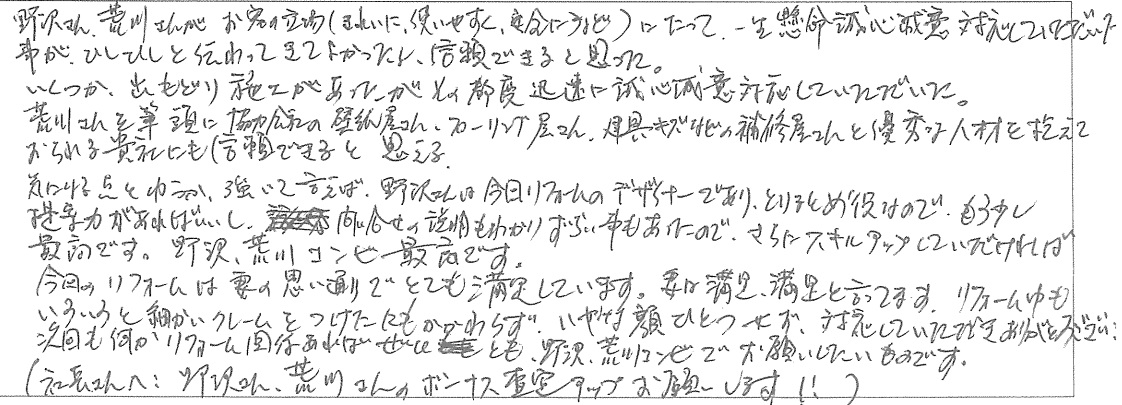 野沢さん、荒川さんがお客の立場(きれいに、使いやすく、安全になど)にたって、一生懸命誠心誠意対応していただいた
事が、ひしひしと伝わってきてよかったし、信頼できると思った。
いくつか、出もどり施工があったがその都度迅速に誠心誠意対応していただいた。
荒川さんを筆頭に協力会社の壁紙屋さん、フローリング屋さん、建具キズなどの補修屋さんと優秀な人材を抱えて
おられる貴社にも信頼できると思える。
気になる点と言うか、強いて言えば、野沢さんは今回リフォームのデザイナーであり、とりまとめ役なので、もう少し
提案力があればいいし、問い合せの説明もわかりずらい事もあったので、さらにスキルアップしていただければ
最高です。野沢、荒川コンビ最高です。
今回のリフォームは妻の思い通りでとても満足しています。妻は満足、満足と言ってます。リフォーム中も
いろいろと細かいクレームをつけたにもかかわらず、いやな顔ひとつせず、対応していただきありがとうござい
次回も何かリフォーム関係あればぜひとも、野沢、荒川コンビでお願いしたいものです。
(社長さんへ:野沢さん、荒川さんのボーナス査定アップお願いします!!)